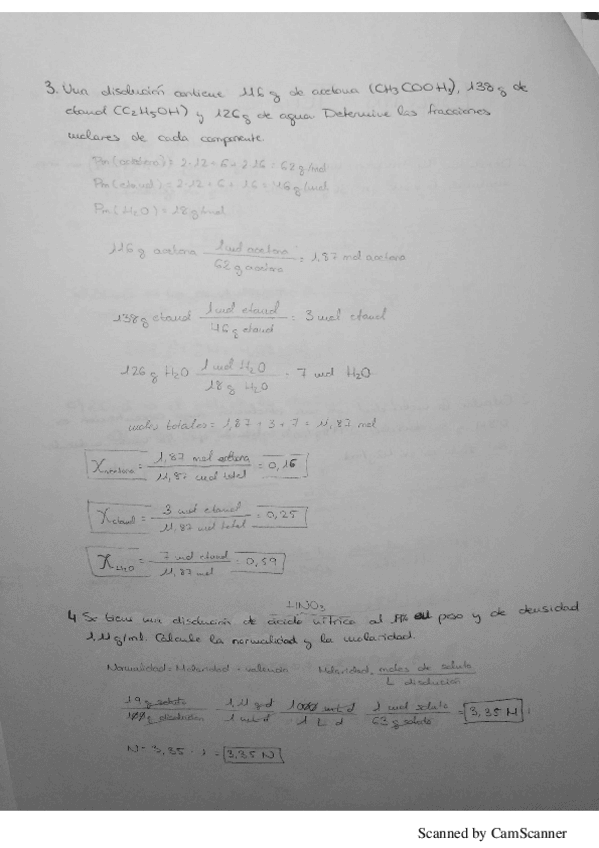 3. Una disolución contiene 116 g de acetona (CH3COOH3), 138 g de
etanol (C2H5OH) y 126 g de agua. Determine las fracciones
molares de cada componente.
Pm (acetona) = 2·12 + 6 + 2·16 = 62 g/mol
Pm (etanol) = 2·12 + 6 + 16 = 46 g/mol
Pm (H2O) = 18 g/mol
116 g acetona 1 mol acetona / 62 g acetona = 1,87 mol acetona
138 g etanol 1 mol etanol / 46 g etanol = 3 mol etanol
126 g H2O 1 mol H2O / 18 g H2O = 7 mol H2O
moles totales = 1,87 + 3 + 7 = 11,87 mol
X acetona = 1,87 mol / 11,87 mol total = 0,16
X etanol = 3 mol etanol / 11,87 mol total = 0,25
X H2O = 7 mol etanol / 11,87 mol = 0,59
HNO3
4. Se tiene una disolución de ácido nítrico al en peso y de densidad
1,11 g/ml. Calcule la normalidad y la molaridad.
Normalidad = Molaridad · valencia Molaridad = moles de soluto / L disolución
19 g soluto / 100 g disolución 1,11 g d / 1 ml d 1000 ml d / 1 L d 1 mol soluto / 63 g soluto = 3,35 M
N = 3,35 · 1 = 3,35 N
Scanned by CamScanner